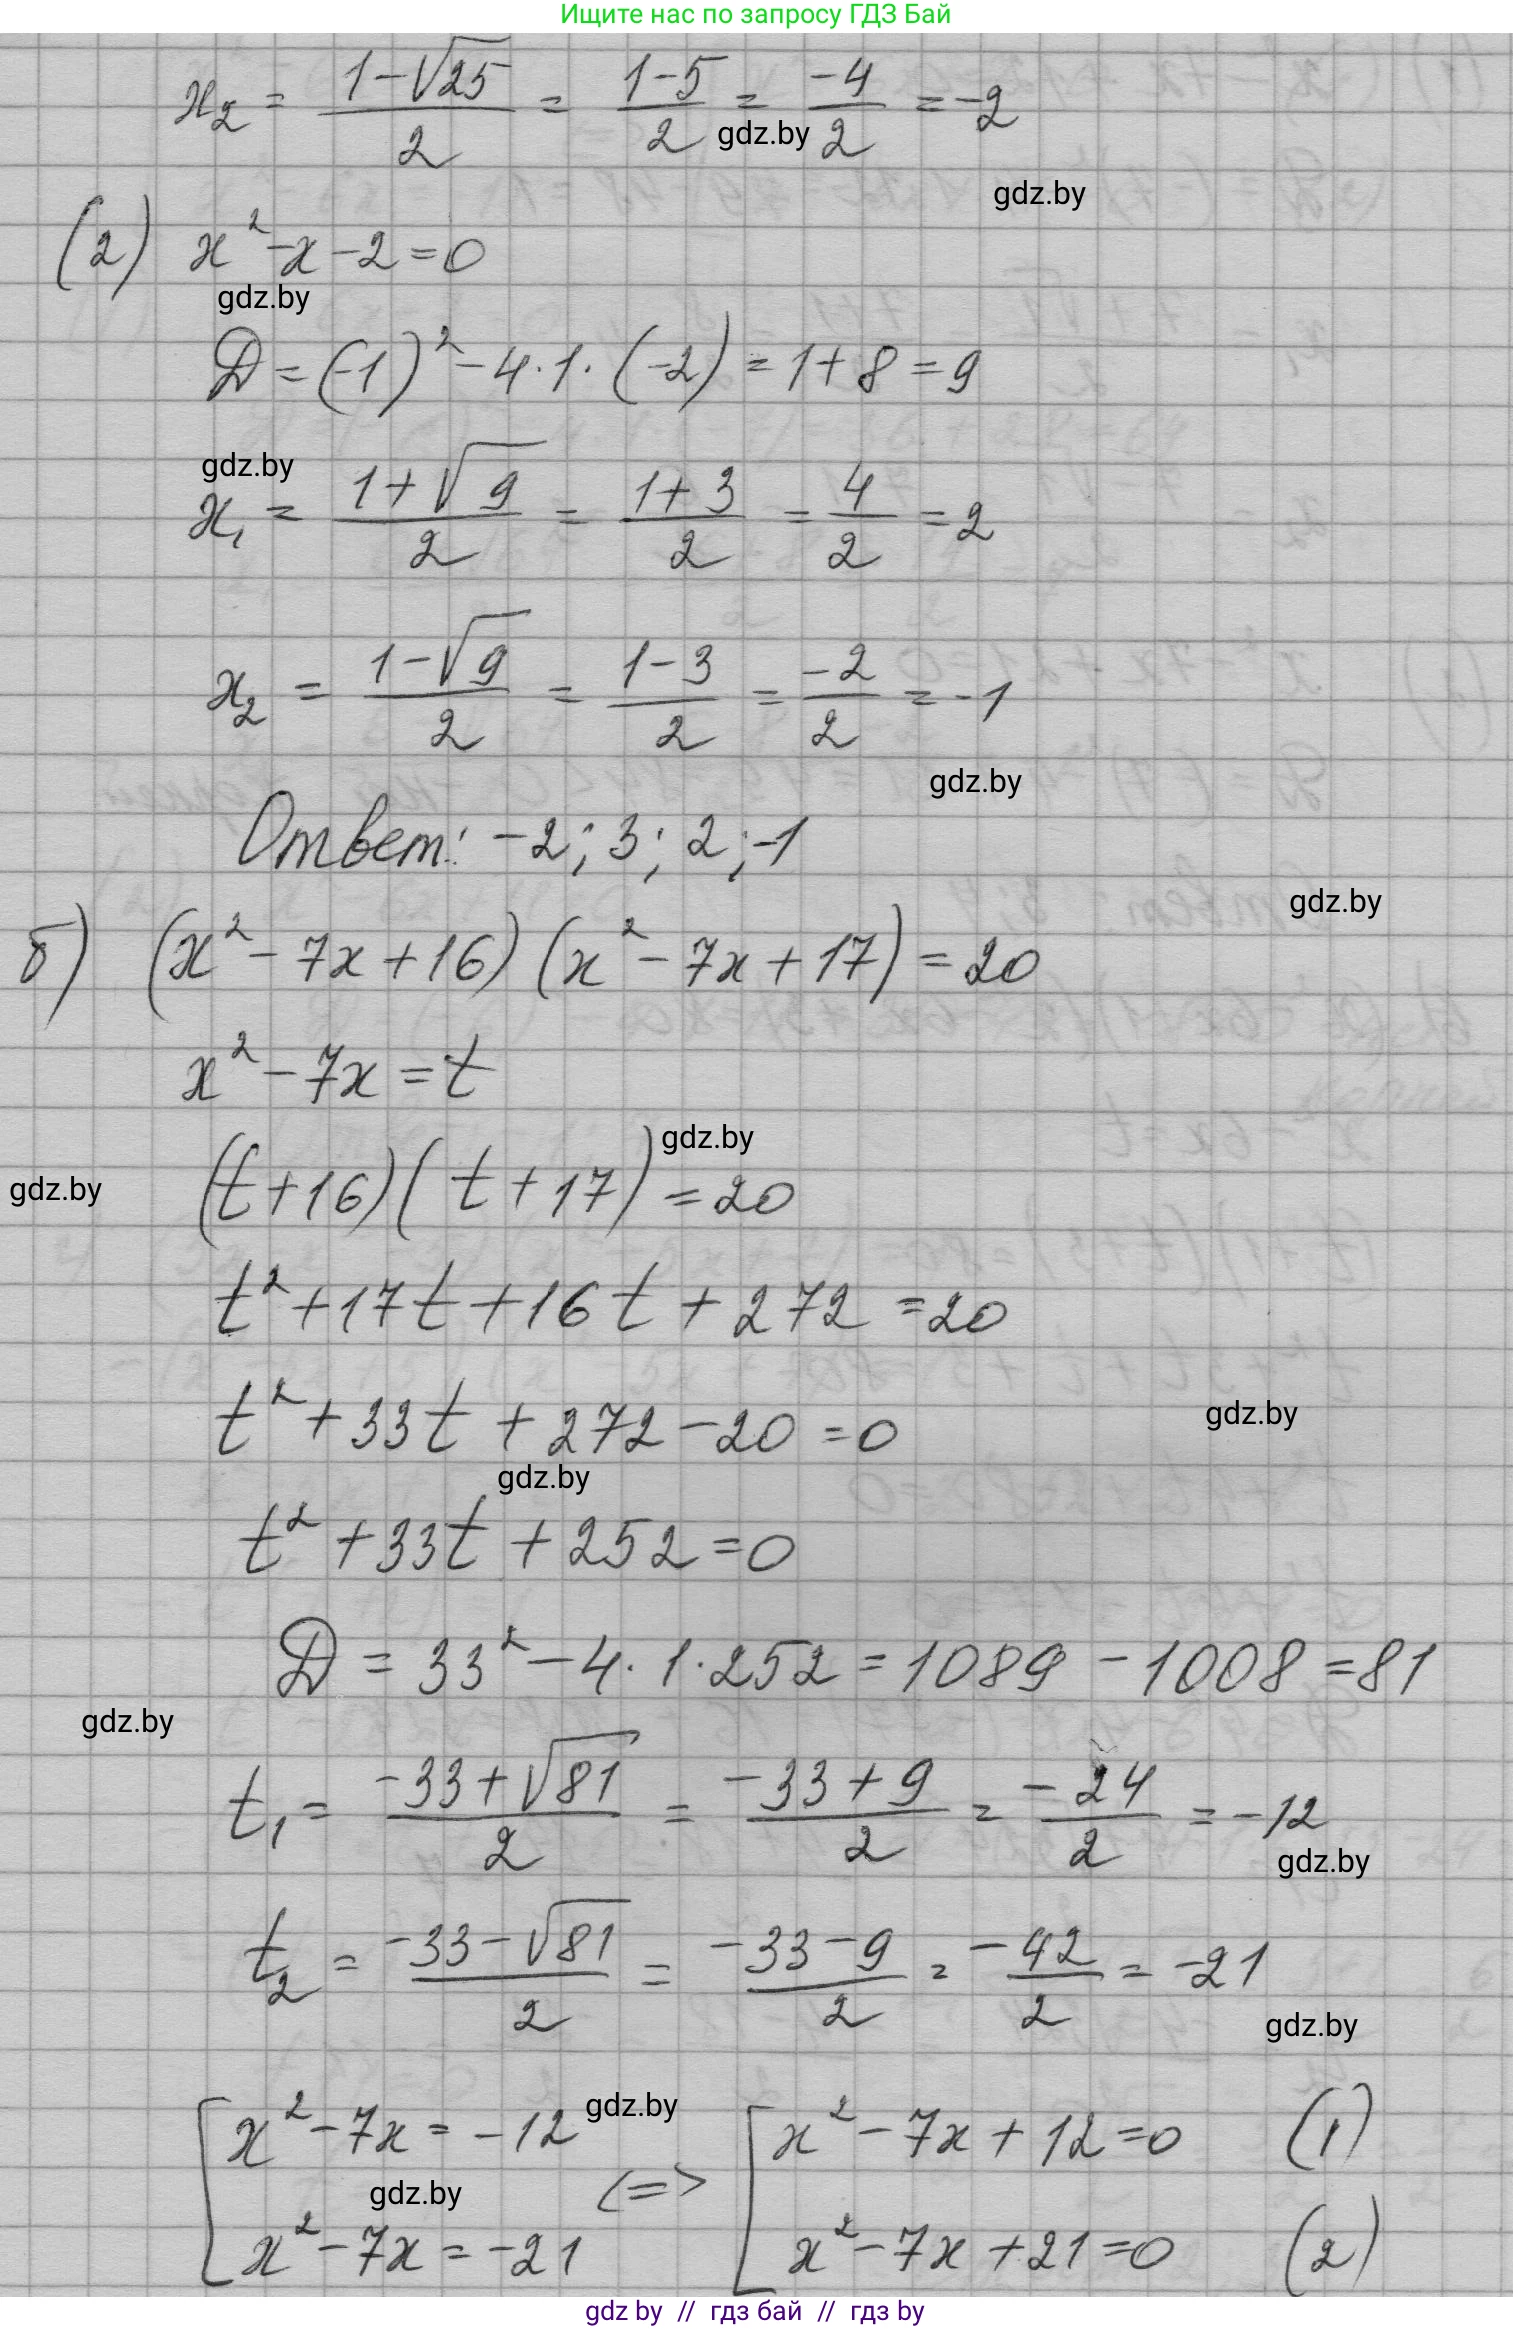 Ищите нас по запросу ГДЗ Бай
x₂ = (1-√25)/2 = (1-5)/2 = -4/2 = -2
gdz.by
gdz.by
(2) x²-x-2=0
gdz.by
D=(-1)²-4·1·(-2)=1+8=9
gdz.by
x₁ = (1+√9)/2 = (1+3)/2 = 4/2 = 2
x₂ = (1-√9)/2 = (1-3)/2 = -2/2 = -1
gdz.by
Ответ: -2; 3; 2; -1
gdz.by
б) (x²-7x+16)(x²-7x+17)=20
x²-7x=t
gdz.by
gdz.by
(t+16)(t+17)=20
t²+17t+16t+272=20
t²+33t+272-20=0
gdz.by
gdz.by
t²+33t+252=0
D=33²-4·1·252=1089-1008=81
gdz.by
t₁ = (-33+√81)/2 = (-33+9)/2 = -24/2 = -12
gdz.by
t₂ = (-33-√81)/2 = (-33-9)/2 = -42/2 = -21
gdz.by
gdz.by
[x²-7x=-12 <=> [x²-7x+12=0 (1)
gdz.by
x²-7x=-21 x²-7x+21=0 (2)
gdz by // гдз бай // гдз by